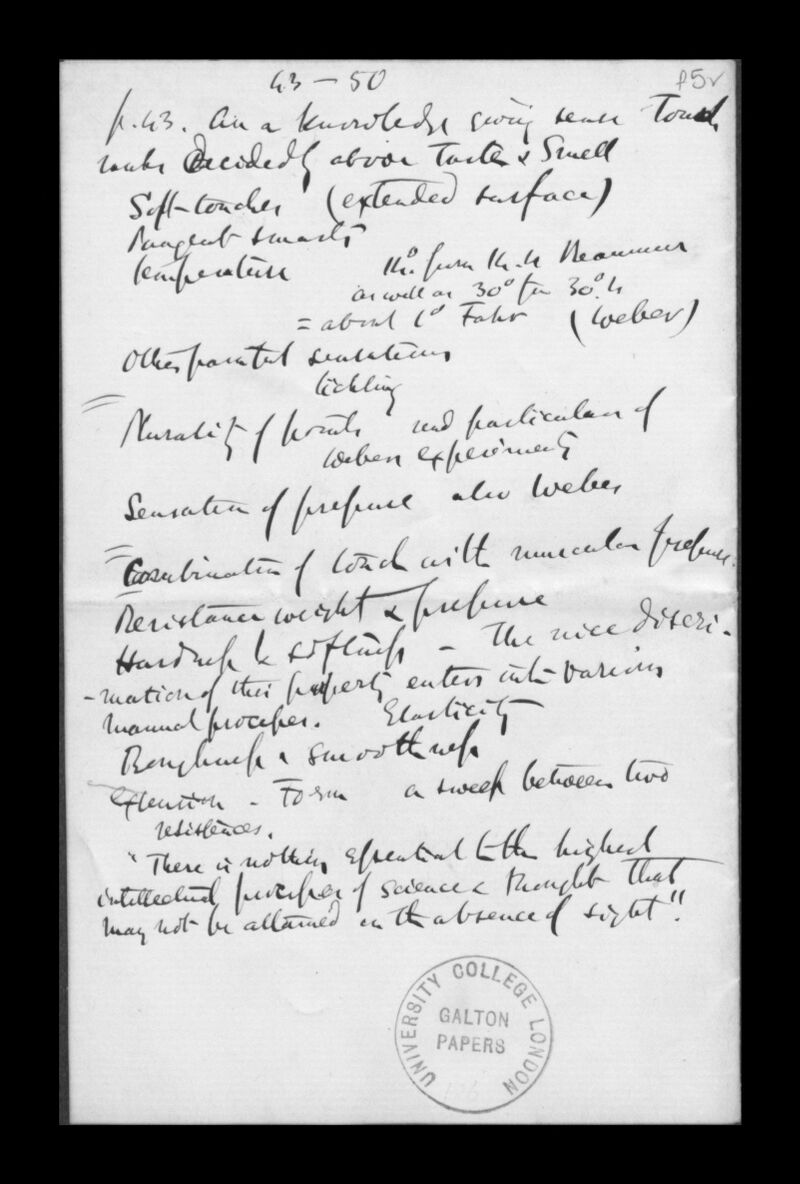 43 – 50
f5v
p. 43. As a knowledge giving sense Touch
ranks decidedly above Taste & Smell
Soft-touches (extended surface)
Pungent smarts
temperature from Reaumur
as well as 30° fm 30°.4
= about 1° Fahr (Weber)
Other painful sensations
tickling
Plurality of points and particulars of
Webers experiments
Sensation of pressure also Weber
Combination of touch with muscular pressure.
Resistance weight & pressure
Hardness & softness – The nice discri-
-mation of this property enters into various
manual processes. Elasticity
Roughness & smoothness
extension – Form a sweep between two
resistances.
"There is nothing essential to the highest
intellectual processes of science & thought that
may not be attained in the absence of sight".
UNIVERSITY COLLEGE LONDON
GALTON
PAPERS